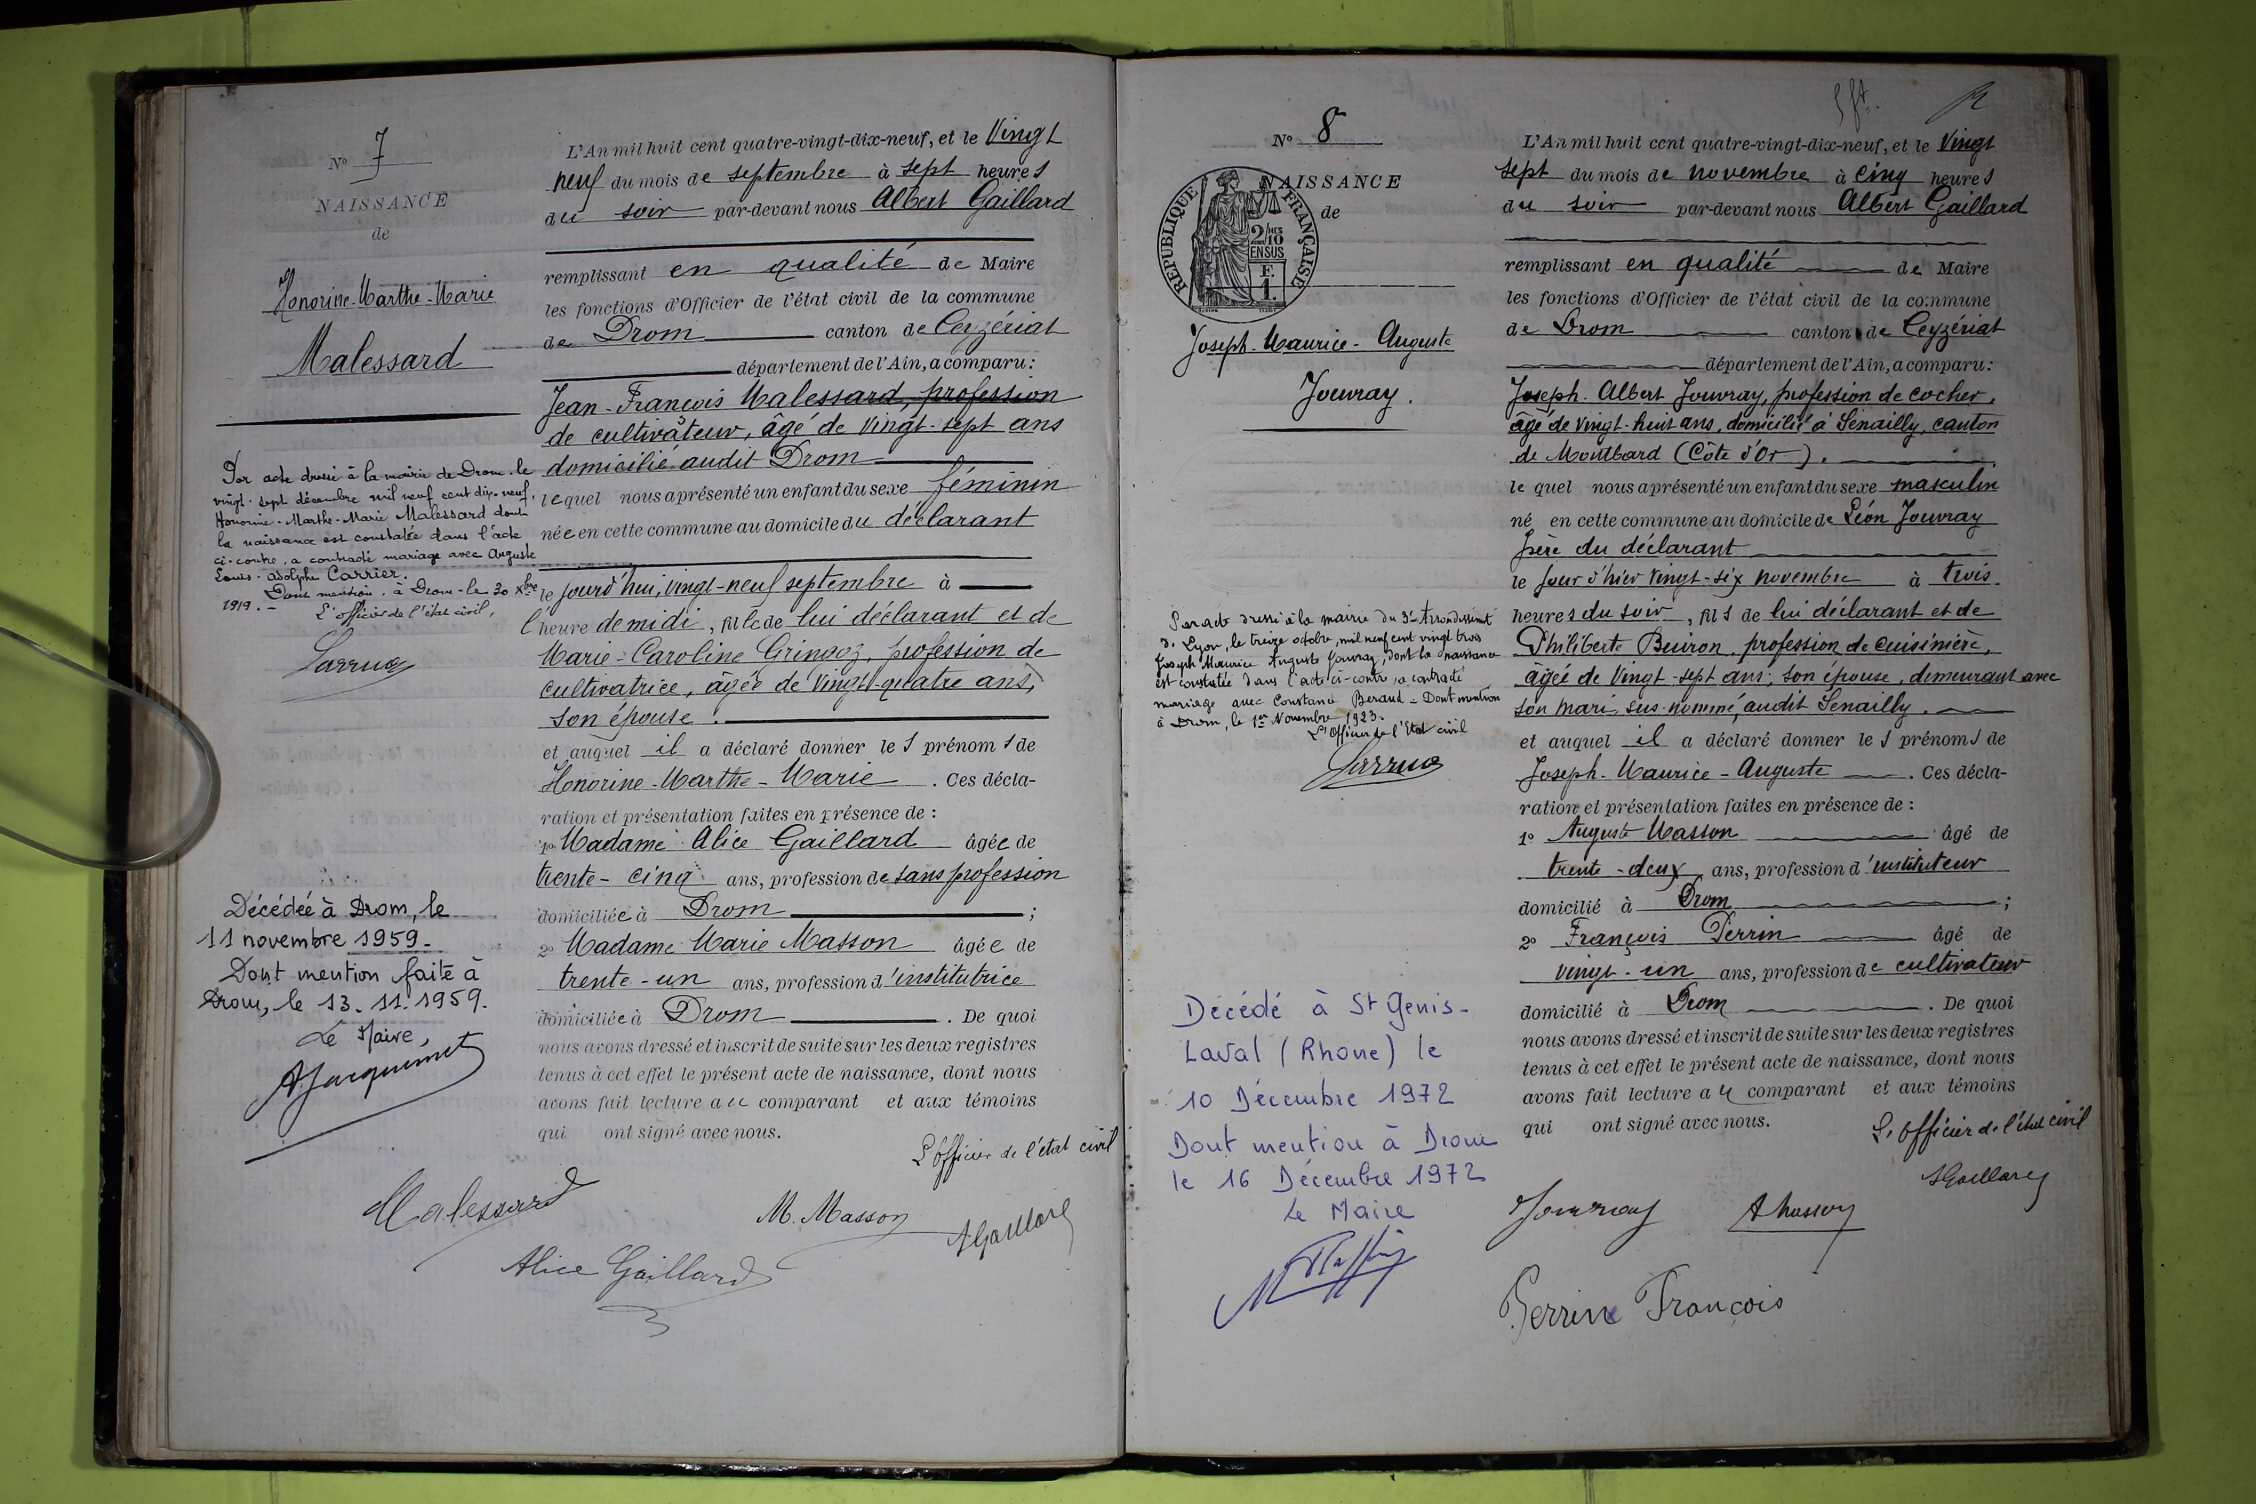 Nº 7
NAISSANCE
de
Honorine-Marthe-Marie
Malessard
Par acte dressé à la mairie de Drom le
vingt-sept décembre mil neuf cent dix-neuf,
Honorine-Marthe-Marie Malessard dont
la naissance est constatée dans l'acte
ci-contre, a contracté mariage avec Auguste
Louis-Adolphe Carrier.
Dont mention. à Drom le 30 Xbre
1919.-
L'officier de l'état civil,
Décédée à Drom, le
11 novembre 1959-
Dont mention faite à
Drom, le 13.11.1959.
Le Maire,
AJacquemet
L'An mil huit cent quatre-vingt-dix-neuf, et le Vingt
neuf du mois de septembre à sept heures
du soir par-devant nous Albert Gaillard
remplissant en qualité de Maire
les fonctions d'Officier de l'état civil de la commune
de Drom canton de Ceyzériat
département de l'Ain, a comparu:
Jean-François Malessard, profession
de cultivateur, âgé de vingt-sept ans
domicilié audit Drom
lequel nous a présenté un enfant du sexe féminin
née en cette commune au domicile du déclarant
le jourd'hui, vingt-neuf septembre à
l'heure de midi, fille de lui déclarant et de
Marie-Caroline Gringoz, profession de
cultivatrice, âgée de vingt-quatre ans,
son épouse.
et auquel il a déclaré donner les prénoms de
Honorine-Marthe-Marie. Ces décla-
ration et présentation faites en présence de :
1º Madame Alice Gaillard âgée de
trente-cinq ans, profession de sans profession
domiciliée à Drom ;
2º Madame Marie Masson âgée de
trente-un ans, profession d'institutrice
domiciliée à Drom. De quoi
nous avons dressé et inscrit de suite sur les deux registres
tenus à cet effet le présent acte de naissance, dont nous
avons fait lecture au comparant et aux témoins
qui ont signé avec nous.
L'officier de l'état civil
Malessard
M. Masson
AGaillard
Alice Gaillard
Nº 8
NAISSANCE
de
RÉPUBLIQUE FRANÇAISE
2/10
EN SUS
F.
1.
Joseph-Maurice-Auguste
Jouvray.
Par acte dressé à la mairie du 3e Arrondissement
de Lyon, le treize octobre, mil neuf cent vingt trois
Joseph Maurice Auguste Jouvray, dont la naissance
est constatée dans l'acte ci-contre, a contracté
mariage avec Constance Beraud - Dont mention
à Drom, le 1er Novembre 1923.
L'Officier de l'Etat civil
Décédé à St Genis-
Laval (Rhone) le
10 Décembre 1972
Dont mention à Drom
le 16 Décembre 1972
Le Maire
L'An mil huit cent quatre-vingt-dix-neuf, et le Vingt
sept du mois de novembre à cinq heures
du soir par-devant nous Albert Gaillard
remplissant en qualité de Maire
les fonctions d'Officier de l'état civil de la commune
de Drom canton de Ceyzériat
département de l'Ain, a comparu:
Joseph-Albert Jouvray, profession de cocher,
âgé de vingt-huit ans, domicilié à Senailly, canton
de Montbard (Côte d'Or).
lequel nous a présenté un enfant du sexe masculin
né en cette commune au domicile de Léon Jouvray
père du déclarant
le jour d'hier vingt-six novembre à trois
heures du soir, fils de lui déclarant et de
Philiberte Buiron, profession de cuisinière,
âgée de vingt-sept ans, son épouse, demeurant avec
son mari sus-nommé, audit Senailly.
et auquel il a déclaré donner les prénoms de
Joseph-Maurice-Auguste. Ces décla-
ration et présentation faites en présence de :
1º Auguste Masson âgé de
trente-deux ans, profession d'instituteur
domicilié à Drom ;
2º François Perrin âgé de
vingt-un ans, profession de cultivateur
domicilié à Drom. De quoi
nous avons dressé et inscrit de suite sur les deux registres
tenus à cet effet le présent acte de naissance, dont nous
avons fait lecture au comparant et aux témoins
qui ont signé avec nous.
L'officier de l'état civil
AGaillard
Jouvray
AMasson
Perrin François